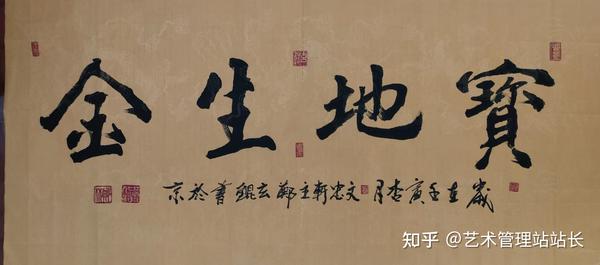 寶地生金
歲在壬寅杏月文忠軒主鄭玄鯤書於京
知乎 @艺术管理站站长